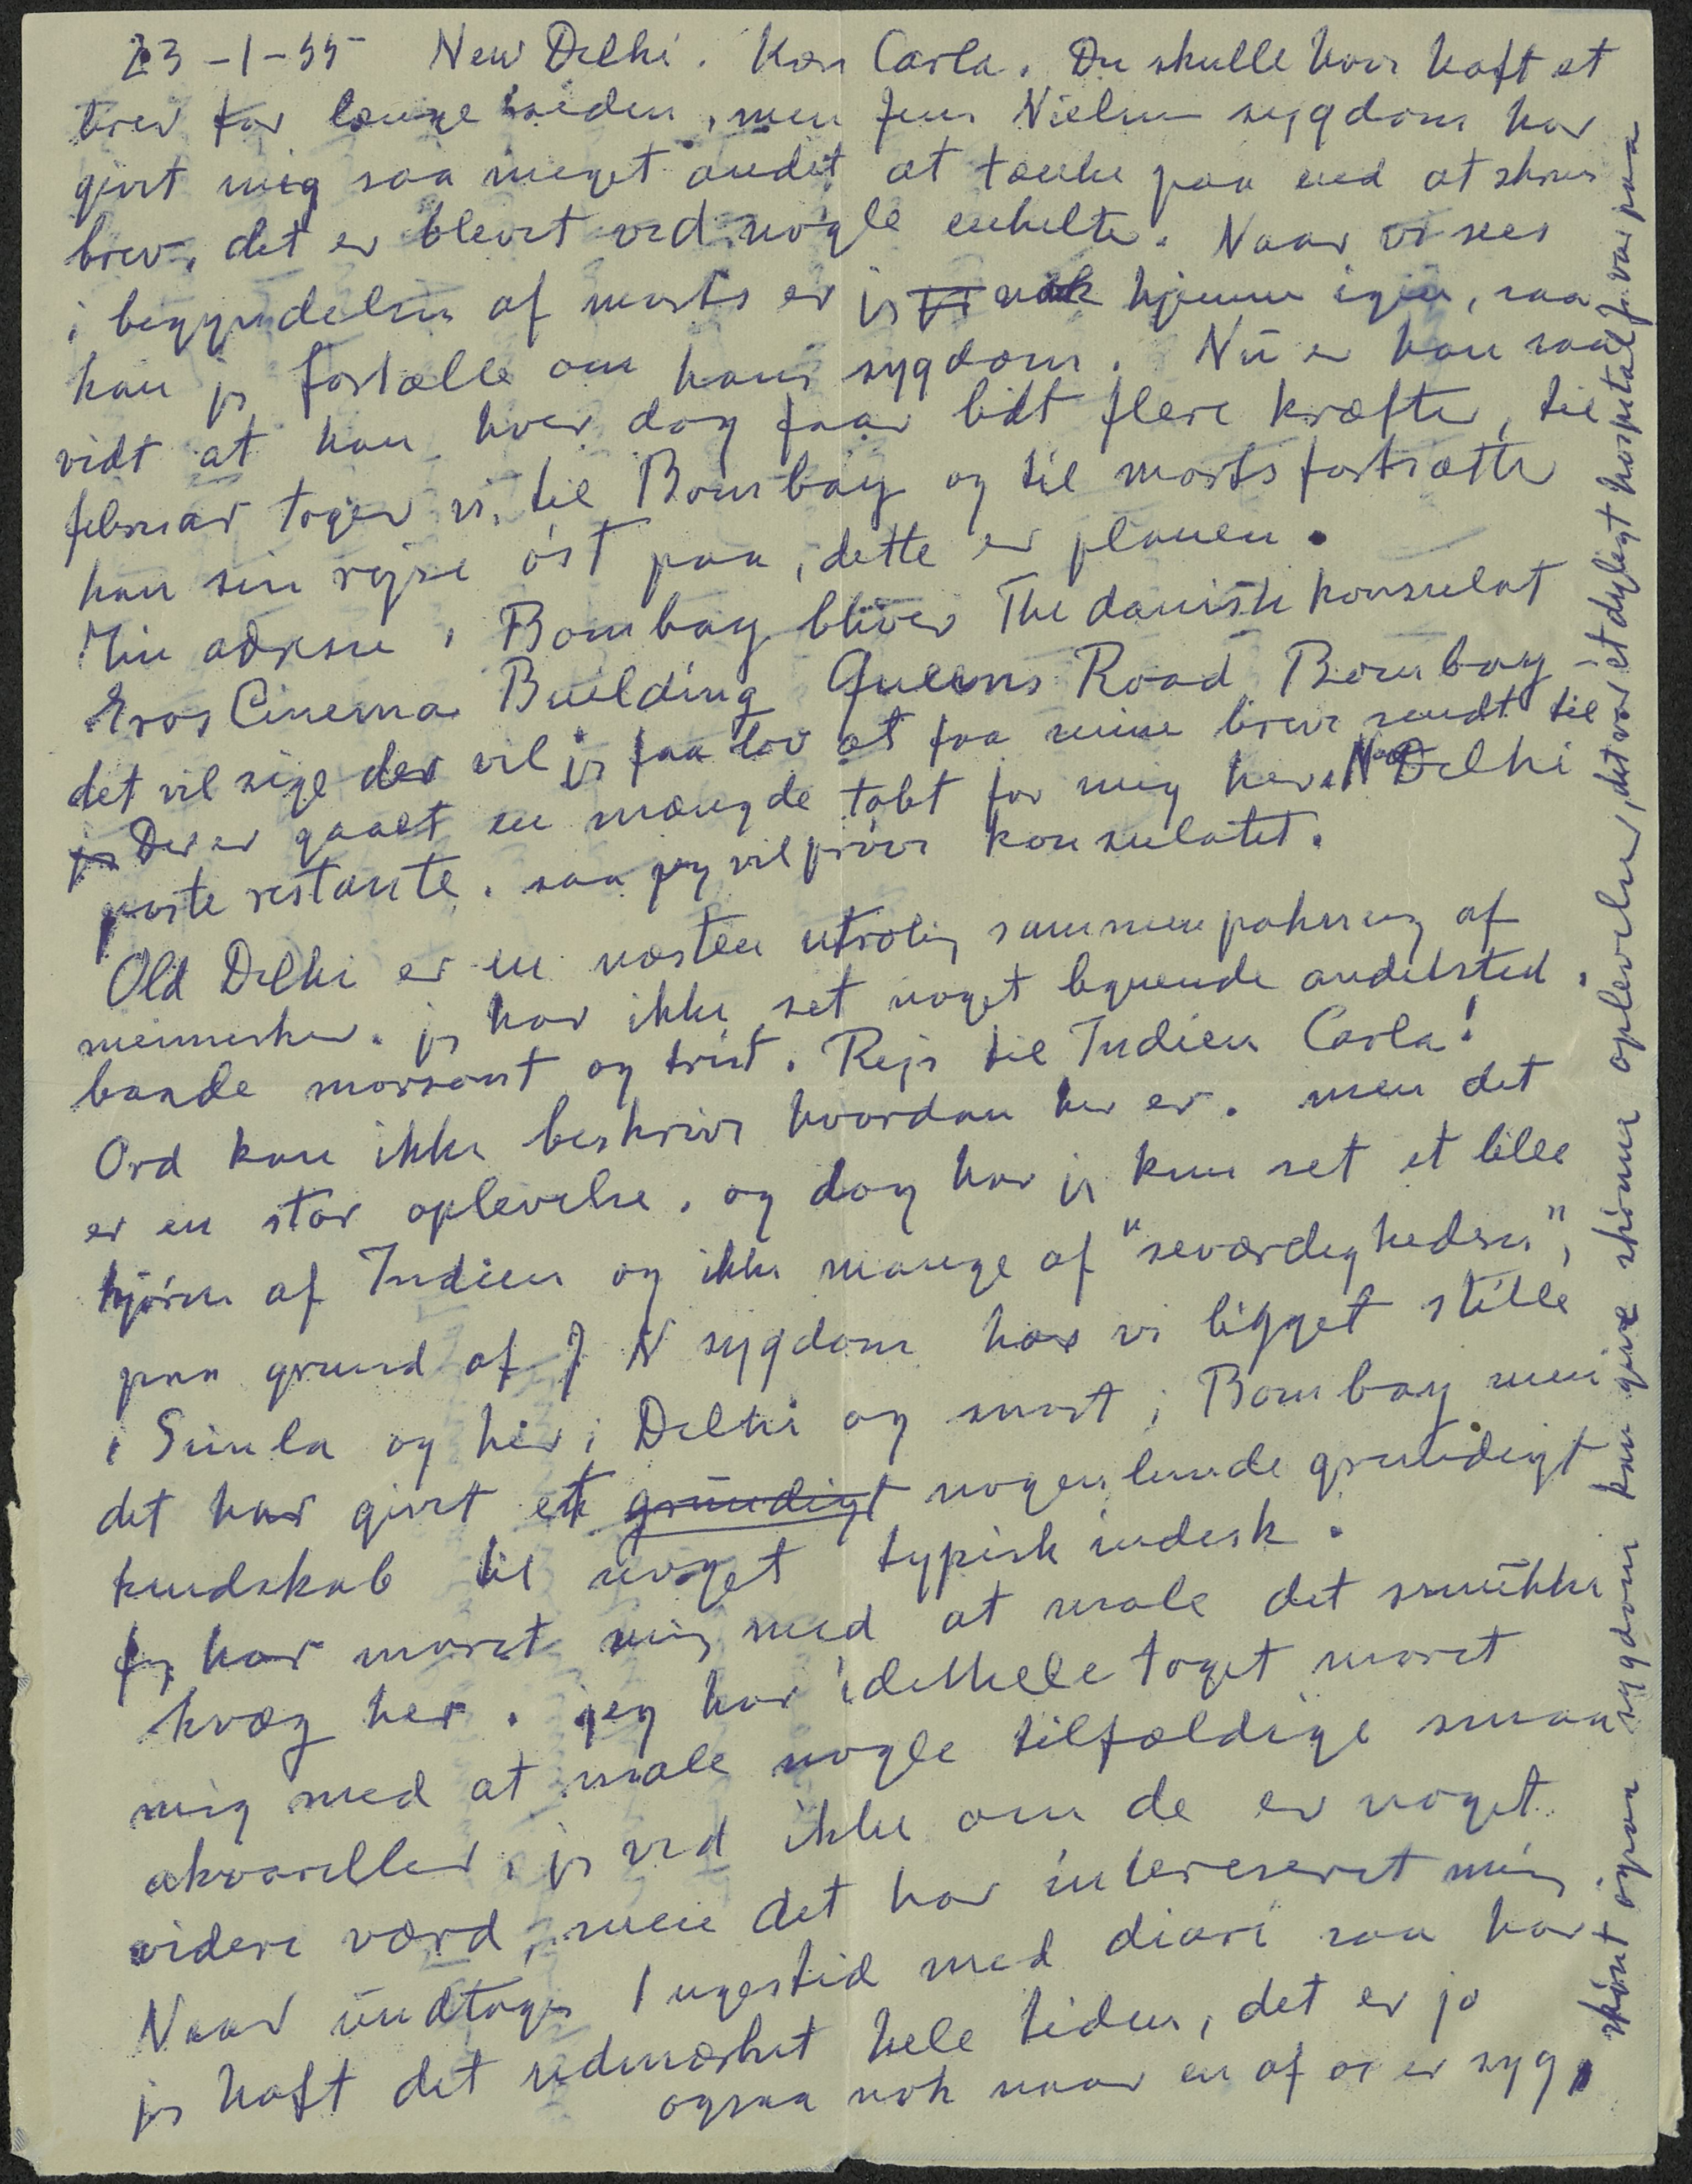 23-1-55 New Delhi. Kære Carla. Du skulle have haft et
brev for længe siden, men Jens Nielsen sygdom har
givet mig saa meget andet at tænke paa end at skrive
brev, det er blevet ved nogle enkelte. Naar vi sees
i begyndelsen af marts er jeg nok hjemme igen, saa
kan jeg fortælle om hans sygdom. Nu er han saa
vidt at han hver dag faar lidt flere kræfter, til
februar tager vi til Bombay og til marts fortsætter
han sin rejse øst paa, dette er planen.
Min adresse i Bombay bliver The danish konsulat
Eros Cinema Building Queens Road Bombay –
det vil sige der vil jeg faa lov at faa mine breve sendt til
Der er gaaet en mængde tabt for mig her i New Delhi
poste restante. saa jeg vil prøve konsulatet.
Old Delhi er en næsten utrolig sammenpakning af
mennesker. jeg har ikke set noget lignende andetsted.
baade morsomt og trist. Rejs til Indien Carla!
Ord kan ikke beskrive hvordan her er. men det
er en stor oplevelse. og dog har jeg kun set et lille
hjørne af Indien og ikke mange af "seværdigheder",
paa grund af J N sygdom har vi ligget stille
i Simla og her i Delhi og snart i Bombay men
det har givet et grundigt nogenlunde grundigt
kundskab til noget typisk indisk.
Jeg har moret mig med at male det smukke
kvæg her. jeg har idethele taget moret
mig med at male nogle tilfældige smaa
akvareller, jeg ved ikke om de er noget
videre værd, men det har intereseret mig
Naar undtages 1 ugestid med diare saa har
jeg haft det udmærket hele tiden, det er jo
ogsaa nok naar en af os er syg,
skønt ogsaa sygdom kan give skønne oplevelser, det var et dejligt hospital J. var paa